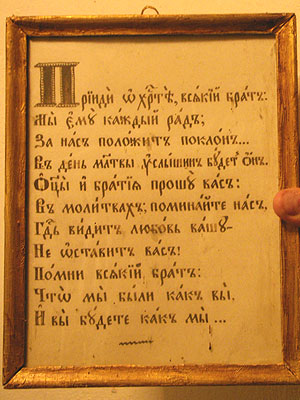 Прїиди ѡ҆ Хр҇тѣ, всѧкїй братъ:
Мы є҆мꙋ̀ каждый радъ;
За насъ положитъ поклонъ...
Въ день мл҃твы ᲂу҆слышинъ бꙋдетъ ѻ҆нъ.
Ѻ҆ц҃ы и҆ братїѧ прошꙋ̀ васъ:
Въ молитвахъ, поминайте насъ,
Гд҇ь видитъ любовь вашꙋ-
Не ѡ҆ставитъ васъ!
Помни всѧкїй братъ:
Что̀ мы̀ были какъ вы,
И҆ вы бꙋдете какъ мы ...